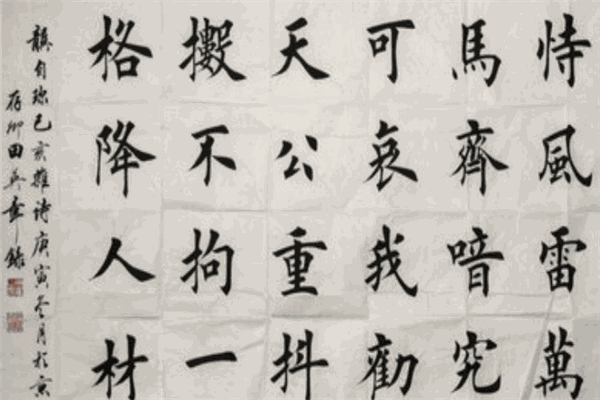 恃風雷萬
馬齊喑究
可哀我勸
天公重抖
擻不拘一
格降人材
龔自珍己亥雜詩庚寅冬月於京
存卿田英章錄